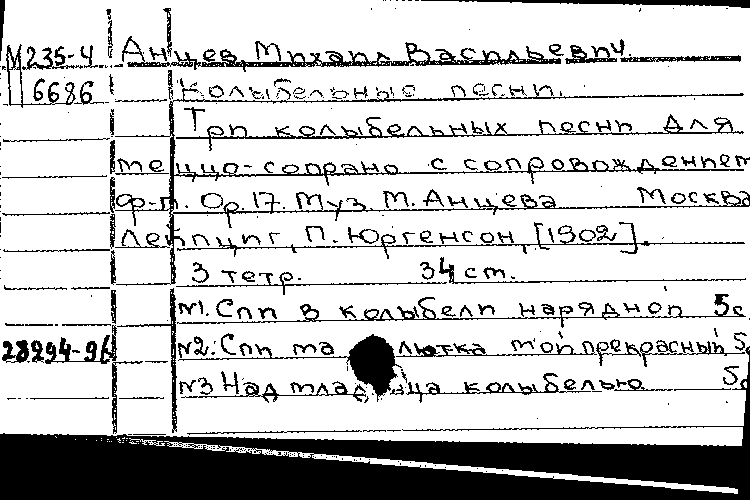 М235-4 Анцев, Михаил Васильевич.
6686 Колыбельные песни.
Три колыбельных песни для
меццо-сопрано с сопровождением
ф-п. Op.17. Муз. М. Анцева Москва
Лейпциг, П. Юргенсон, [1902].
3 тетр. 34 cm.
№1. Спи в колыбели нарядной 5с
28294-96 №2. Спи ма лютка мой прекрасный, 5с
№3 Над млад нца колыбелью 5с